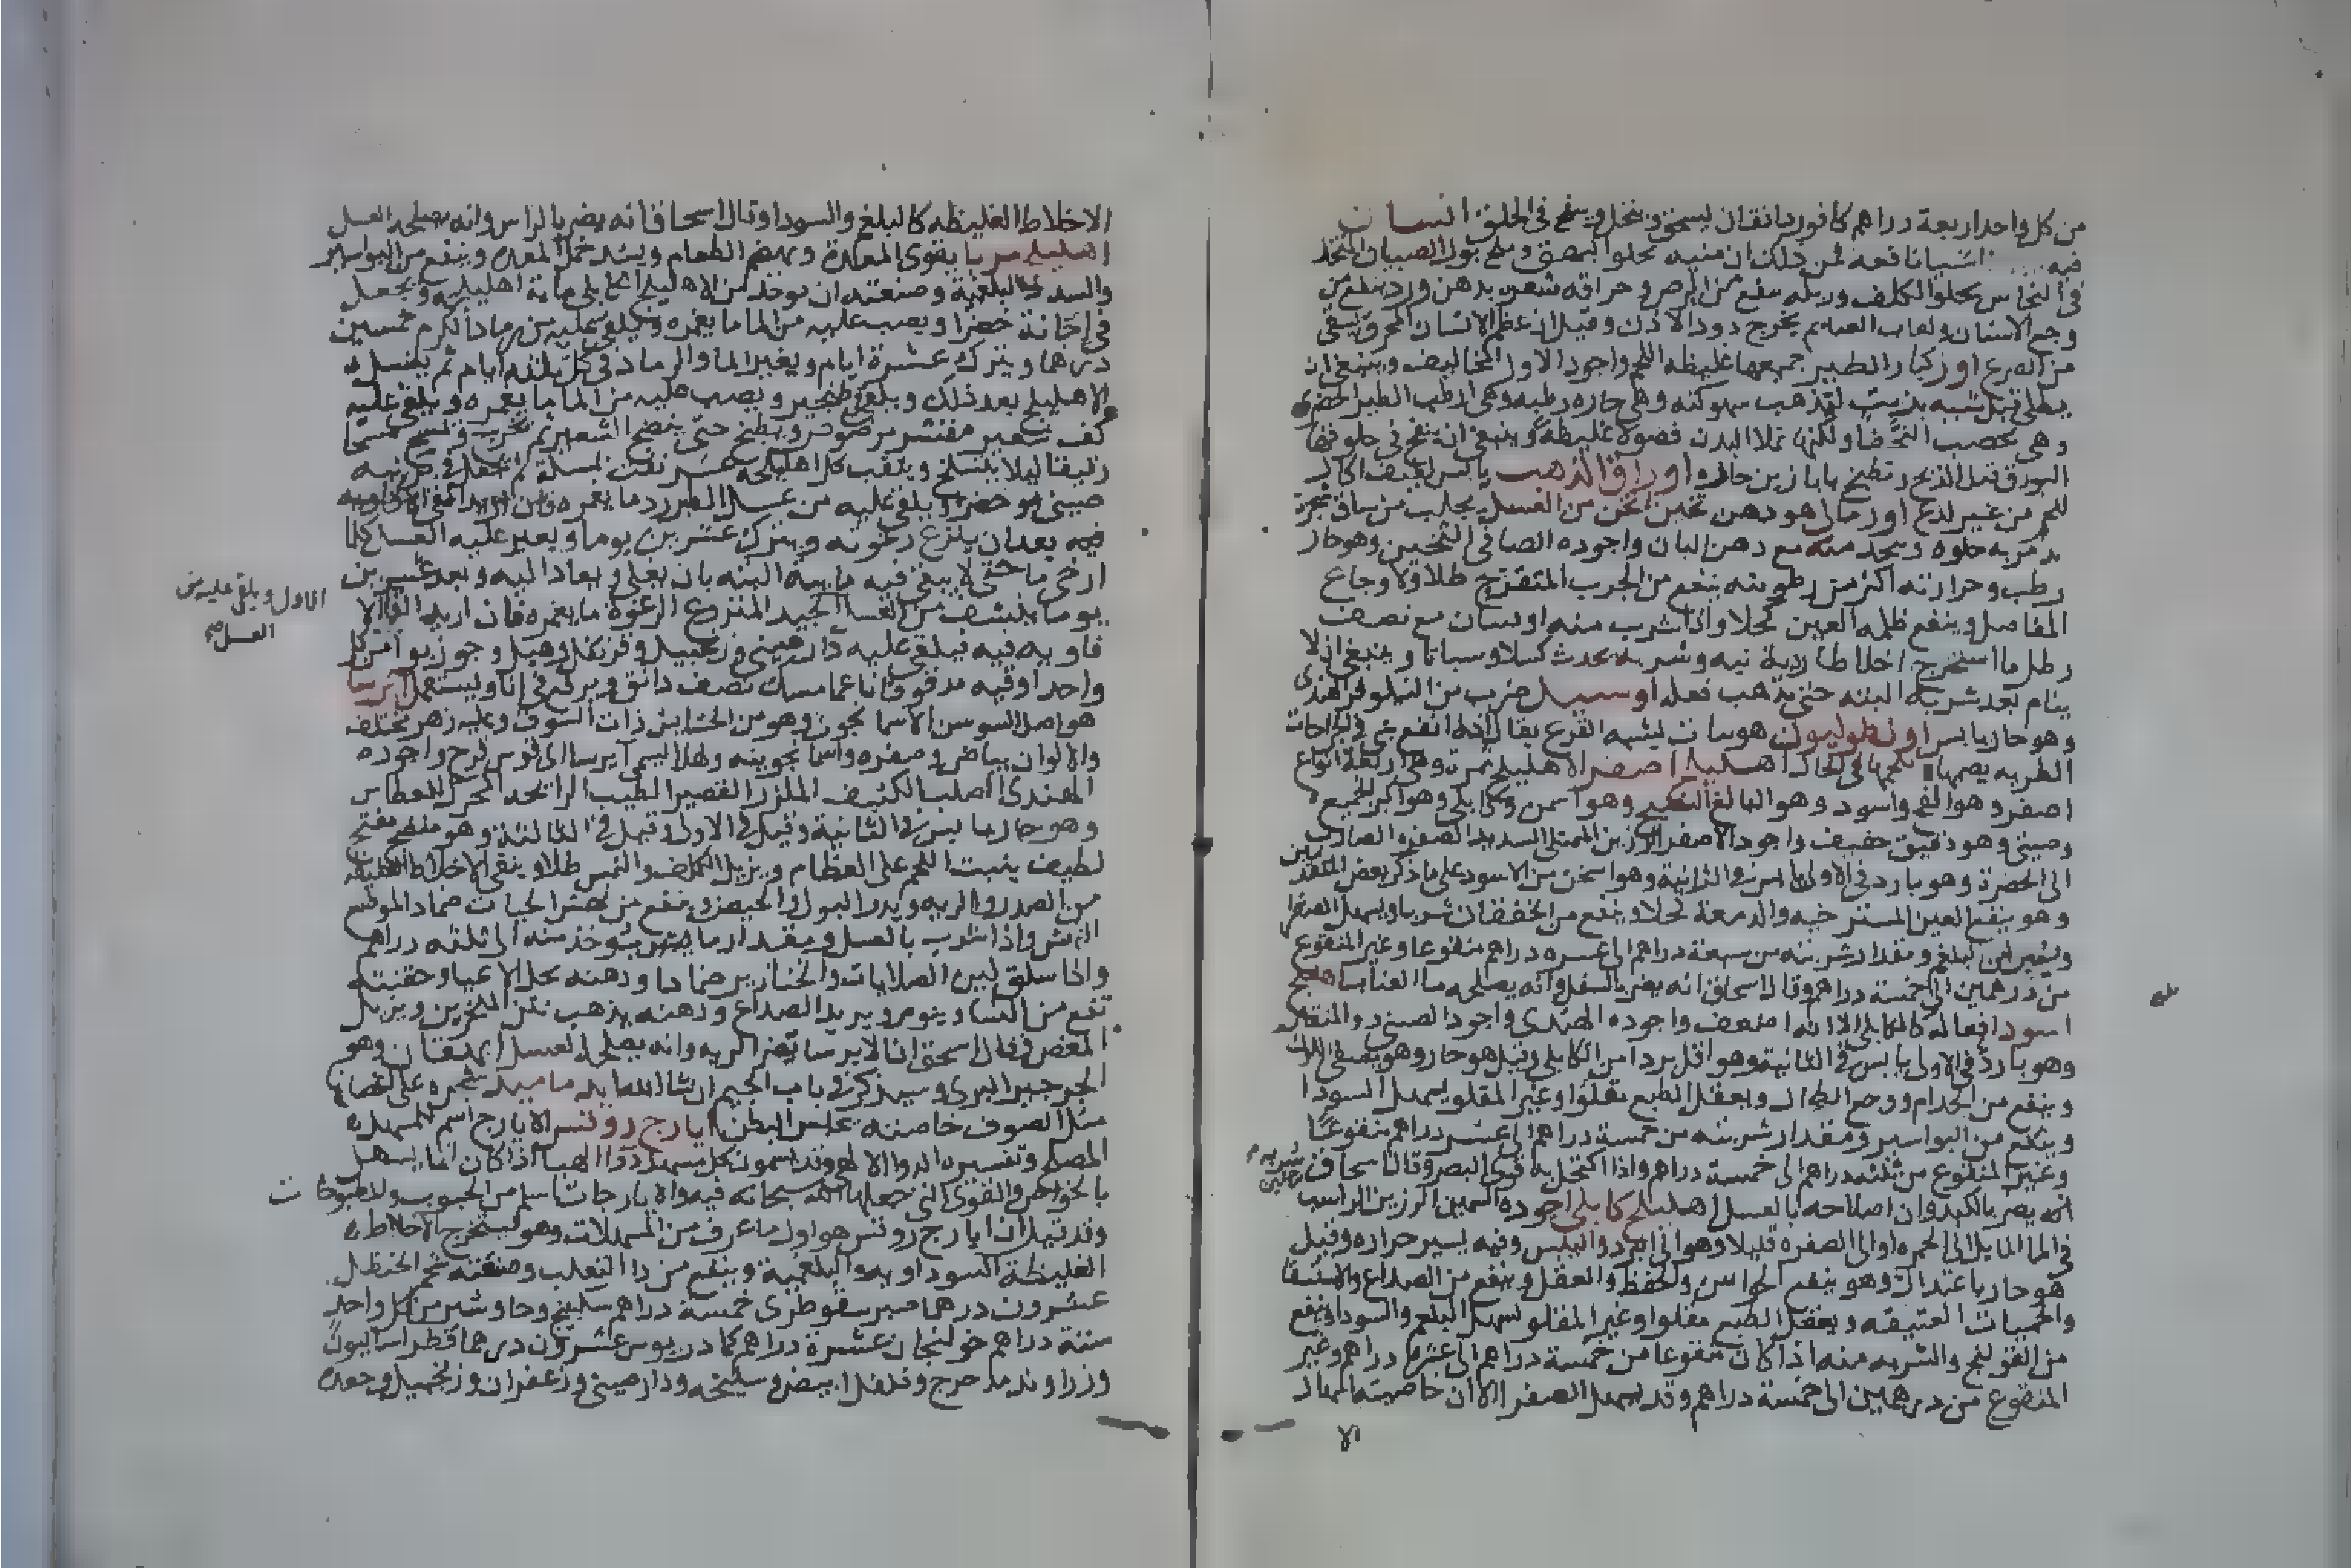 من كل واحد اربعة دراهم كافور دانقان يسحق وينخل وينفخ في الحلق انسان
فيه اشيا نافعه فمن ذلك ان منيه يجلو البهق وملح بول الصبيان المتخذ
في النحاس يجلو الكلف وزبله ينفع من البرص وحراقه شعره بدهن ورد ينفع من
وجع الاسنان ولعاب الصايم يخرج دود الاذن وقيل ان عظم الانسان المحرق يسقى
من الصرع اوز كبار الطير جميعها غليظه اللحم واجود الاوز المخاليف وينبغي ان
يطلى قبل شيه بزيت لتذهب سهوكته وهي حاره رطبه وهي ارطب الطير الحضري
وهي تخصب النحفا ولكنها تملا البدن فضولا غليظة وينبغي ان ينفخ في حلوقها
البورق قبل الذبح وتطبخ بابازير حاره اوراق الذهب يابس لطيف اكال
للحم من غير لذع اورمالي هو دهن ثخين اثخن من العسل يجلب من ساق شجرة
تدمر به حلوه ويتخذ منه مع دهن البان واجوده الصافي الثخين وهو حار
رطب وحرارته اكثر من رطوبته ينفع من الجرب المتقرح طلا ولاوجاع
المفاصل وينفع ظلمه العين كحلا واذا شرب منه اوسان مع نصف
رطل ما استخرج اخلاطا ردية نيه وشربه يحدث كسلا وسباتا وينبغي ان لا
ينام بعد شربه البته حتى يذهب فعله اوسبيل ضرب من النيلوفر الهندي
وهو حار يابس اونطوليون هو نبات يشبه القرع يقال انه انفع شي في الجراحات
الطريه يضمها اهليلج اصفر الاهليلج ثمرة وهي اربعة انواع
اصفر وهو الفج واسود وهو البالغ النضيج وهو اسمن وكابلي وهو اكبر الجميع
وصيني وهو دقيق خفيف واجود الاصفر الرزين الممتلي الشديد الصفره الضارب
الى الخضرة وهو بارد في الاولى يابس في الثانية وهو اسخن من الاسود على ما ذكر بعض المتقدمين
وهو ينفع العين المسترخيه والدمعة كحلا وينفع من الخفقان شربا ويسهل الصفرا
ويسير من البلغم ومقدار شربته من سبعة دراهم الى عشره دراهم منقوعا وغير المنقوع
من درهمين الى خمسة دراهم وقال اسحاق انه يضر بالسفل وانه يصلحه ما العناب اهليلج
اسود افعاله كالكابلي الا انه اضعف واجوده الهندي واجود الصيني ذو المنقار
وهو بارد في الاولى يابس في الثانية وهو اقل بردا من الكابلي وقيل هو حار وهو يصفي اللون
وينفع من الجذام ووجع الطحال ويعقل الطبع مقلوا وغير المقلو يسهل السودا
وينفع من البواسير ومقدار شربته من خمسة دراهم الى عشر دراهم منقوعا
وغير المنقوع من ثلثه دراهم الى خمسة دراهم واذا اكتحل به قوى البصر وقال اسحاق
انه يضر بالكبد وان اصلاحه بالعسل اهليلج كابلي اجوده السمين الرزين الراسب
في الما المايل الى الحمره والى الصفره قليلا وهو الى البرد واليبس وفيه يسير حراره وقيل
هو حار باعتدال وهو ينفع الحواس والحفظ والعقل وينفع من الصداع والاستسقا
والحميات العتيقه ويعقل الطبع مقلوا وغير المقلو يسهل البلغم والسودا وينفع
من القولنج والشربه منه اذا كان منقوعا من خمسة دراهم الى عشرة دراهم وغير
المنقوع من درهمين الى خمسة دراهم وقد يسهل الصفرا الا ان خاصيته اسهال
الا
الاخلاط الغليظه كالبلغم والسودا وقال اسحاق انه يضر بالراس وانه يصلحه العسل
اهليلج مربا يقوي المعدة ويهضم الطعام ويشد خمل المعده وينفع من البواسير
والسدد البلغمية وصنعته ان يوخذ من الاهليلج الكابلي ماية اهليلجه ويجعل
في اجانة خضرا ويصب عليه من الما ما يغمره ويلقى عليه من رماد الكرم خمسين
درهما ويترك عشرة ايام ويغير الما والرماد في كل ثلثه ايام ثم يغسل
الاهليلج بعد ذلك ويلقى في طنجير ويصب عليه من الما ما يغمره ويلقى عليه
كف شعير مقشر مرضوض ويطبخ حتى ينضج الشعير ثم يخرج ويمسح مسحا
رقيقا ليلا ينسلخ ويثقب كل اهليلجه عشر ثقب بمسلة ثم يجعل في برنيه
صيني او خضرا ويلقى عليه من عسل الطبرزد ما يغمره فان اريد القي الافاويه
فيه بعد ان ينزع رغوته ويترك عشرين يوما ويغير عليه العسل كلما
ارخى ما حتى لا يبقى فيه مايية البته بان يغلي ويعاد اليه وبعد عشرين
يوما ينشف من العسل الجيد المنزوع الرغوة ما يغمره فان اريد القا الا
فاويه فيه فيلقى عليه دارصيني وزنجبيل وقرنفل وهيل وجوز بوا من كل
واحد اوقيه مدقوقا ناعما مسك نصف دانق ويرفع في انا ويستعمل ايرسا
هو اصل السوسن الاسمانجوني وهو من الحشايش ذات السوق وعليه زهر مختلف
والالوان بياض وصفره واسمانجونيه ولهذا سمي ايرسا اي قوس قزح واجوده
الهندي الصلب الكثيف الملزز القصير الطيب الرايحه المحرك للعطاس
وهو حار يابس في الثانية وقيل في الاولى وقيل في الثالثة وهو منضج مفتح
لطيف ينبت اللحم على العظام ويزيل الكلف والنمش طلا وينقي الاخلاط الغليظه
من الصدر والريه ويدر البول والحيض وينفع من نهش الحيات ضماد الموضع
النهش واذا شرب بالعسل ومقدار ما يوخذ منه الى ثلثه دراهم
واذا سلق لين الصلابات والخنازير ضمادا ودهنه يحلل الاعيا وحقنته
تنفع من النسا وينوم ويزيد الصداع ودهنه يذهب نتن المنخرين ويزيل
المغص وقال اسحق ان الايرسا يضر الريه وانه يصلحه العسل ايهقان وهو
الجرجير البري وسيذكر في باب الجيم ان شا الله ايدماميد شجره على اغصانها
مثل الصوف خاصته حبس البطن ايارج روفس الايارج اسم للمسهله
المصلح وتفسيره الدوا الالهي وقد يسمون كل مسهل دوا الهيا اذا كان انما يسهل
بالخواص والقوى التي جعلها الله سبحانه فيه والايارجات اسلم من الحبوب والمطبوخات
وقد قيل ان ايارج روفس هو اول ما عرف من المسهلات وهو يستخرج الاخلاط
الغليظة السوداويه والبلغمية وينفع من دا الثعلب وصنعته شحم الحنظل
عشرون درهما صبر سقوطري خمسة دراهم سكبينج وجاوشير من كل واحد
ستة دراهم خولنجان عشرة دراهم كمادريوس عشرون درهما فطراساليون
وزراوند مدحرج وفلفل ابيض وسليخه ودارصيني وزعفران وزنجبيل وجعده
الاول ويلقى عليه من
العسل صح